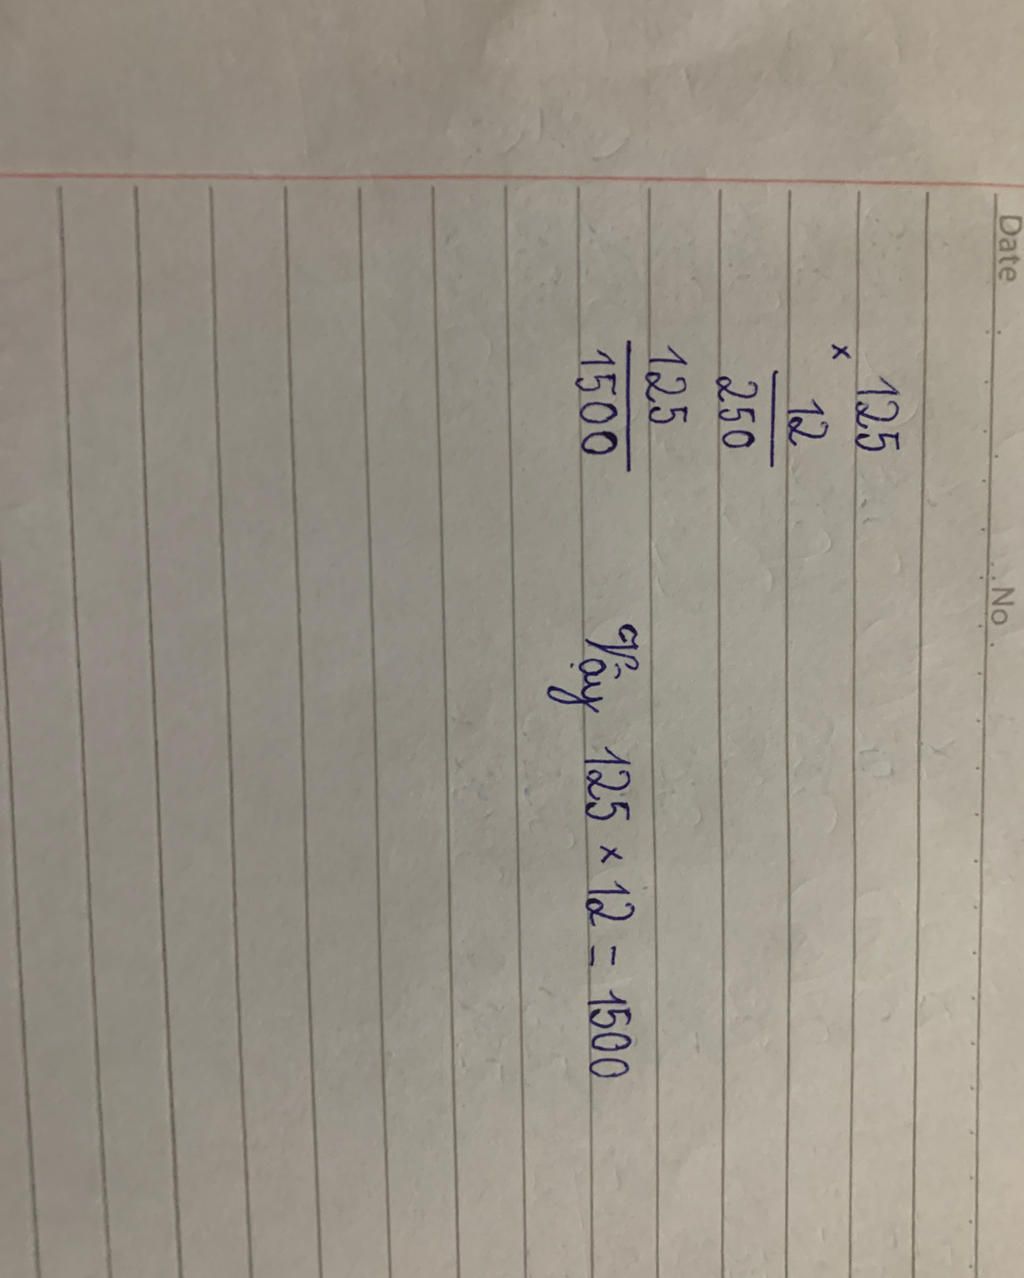 Date No
125
×
12
250
125
1500
Vậy 125 × 12 = 1500